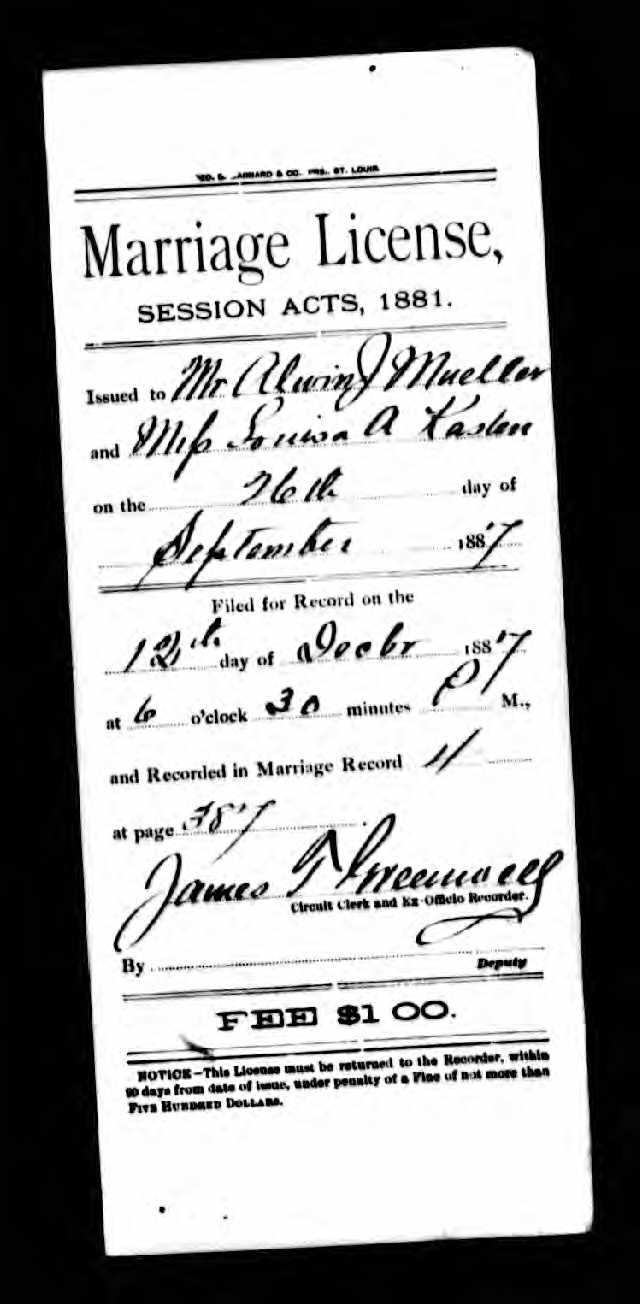 GEO. D. BARNARD & CO. PRS. ST. LOUIS
Marriage License,
SESSION ACTS, 1881.
Issued to Mr Alwin J Mueller
and Miss Louisa A Kasten
on the 26th day of
September 1887
Filed for Record on the
12th day of Decbr 1887
at 6 o'clock 30 minutes P M.,
and Recorded in Marriage Record 4
at page 387
James T Greenwell
Circuit Clerk and Ex-Officio Recorder.
By Deputy
FEE $1 00.
NOTICE—This License must be returned to the Recorder, within
90 days from date of issue, under penalty of a Fine of not more than
FIVE HUNDRED DOLLARS.